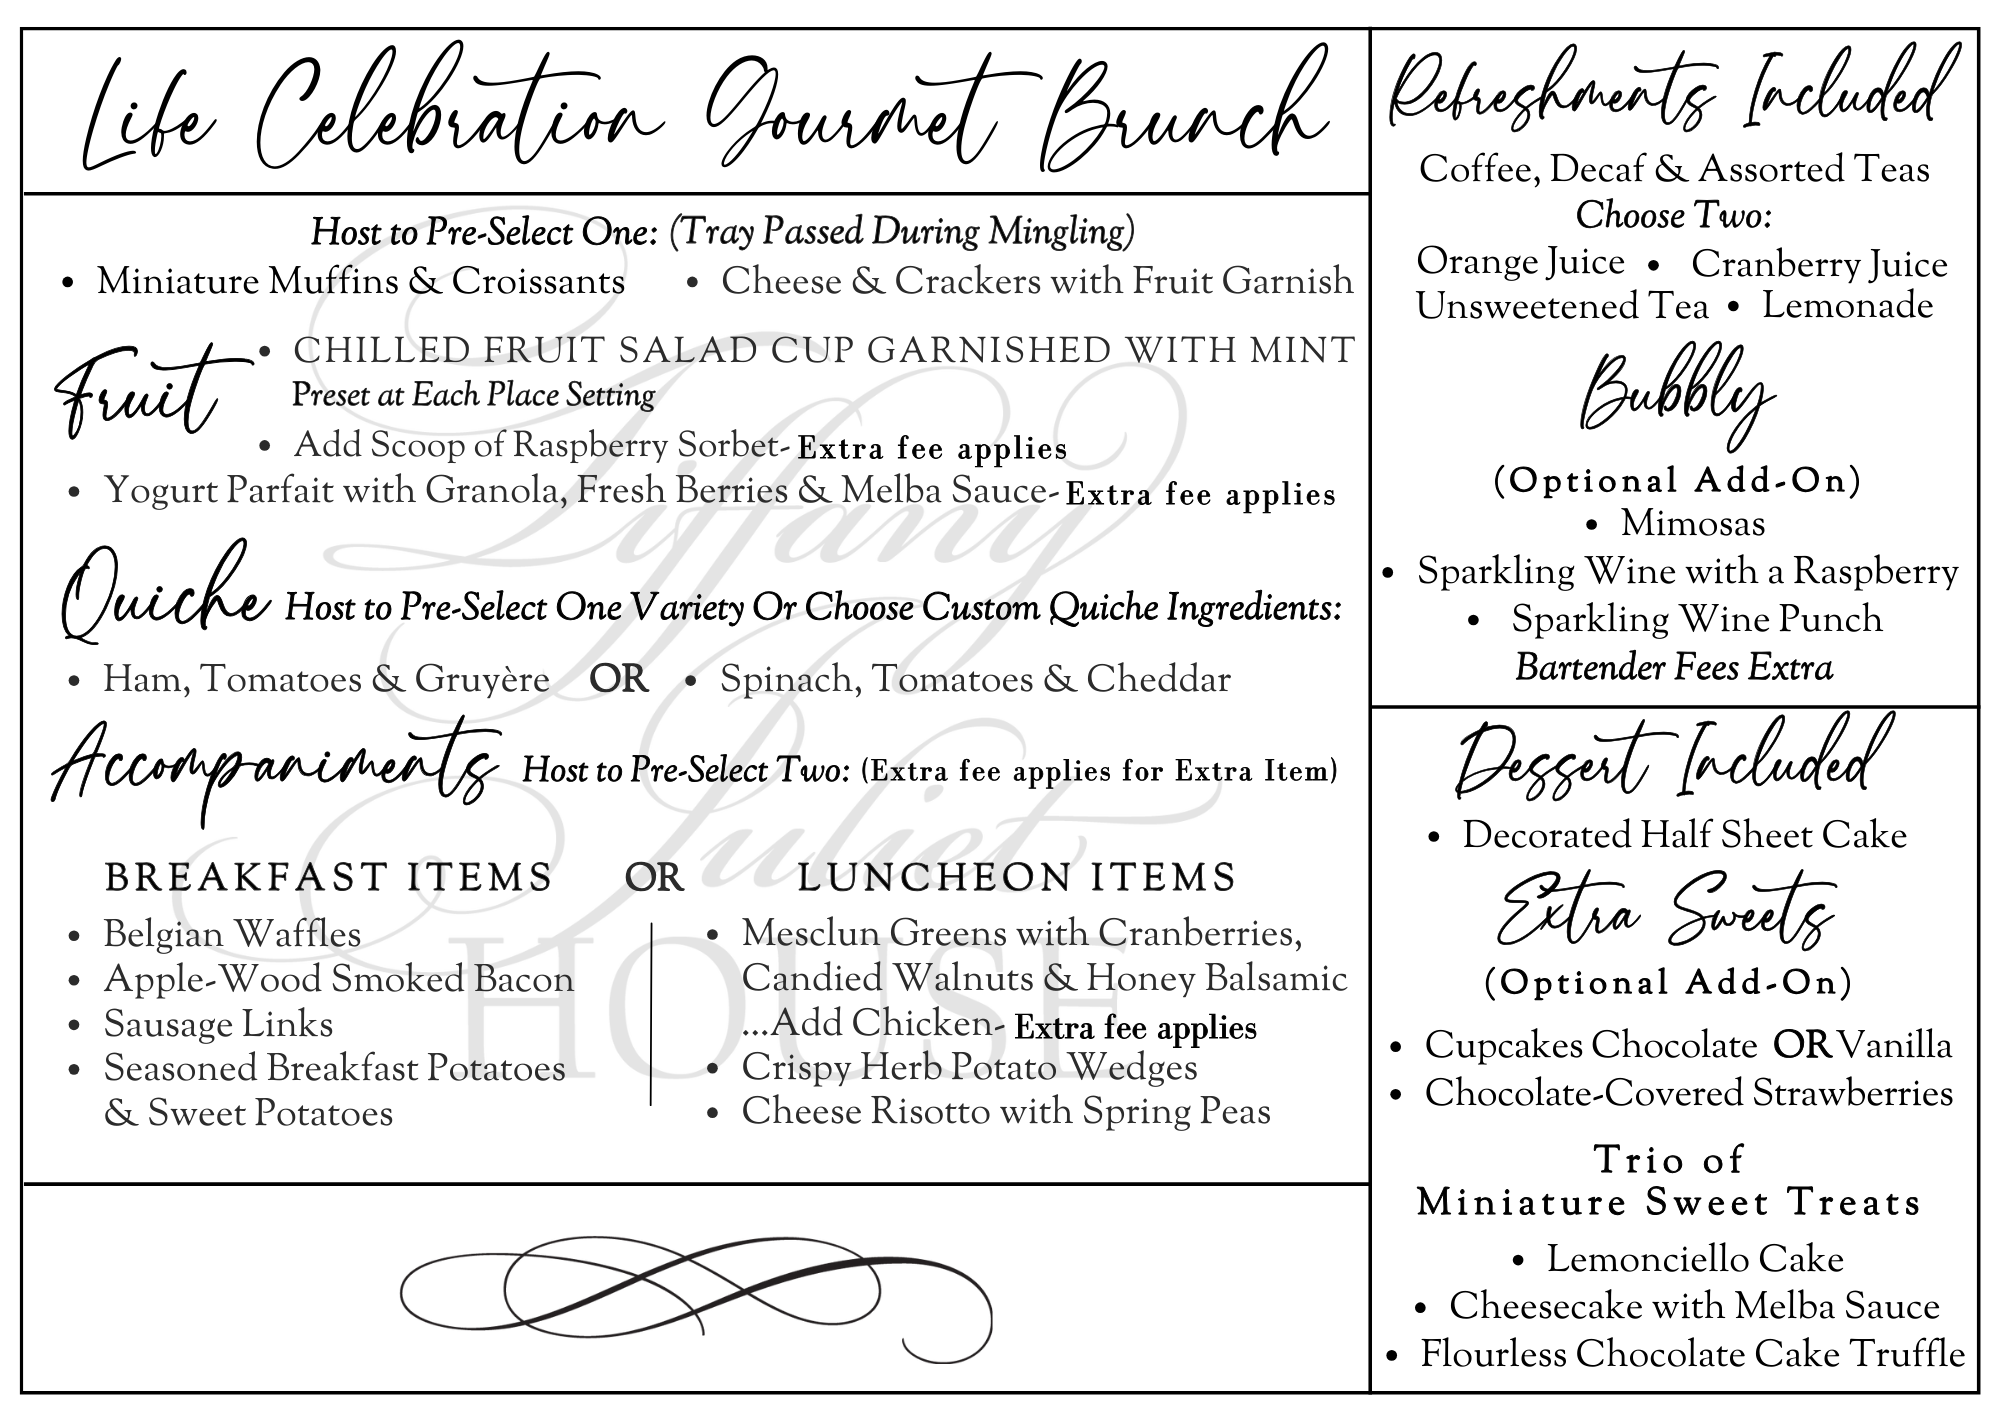 Life Celebration Gourmet Brunch
Host to Pre-Select One: (Tray Passed During Mingling)
• Miniature Muffins & Croissants • Cheese & Crackers with Fruit Garnish
Fruit
• CHILLED FRUIT SALAD CUP GARNISHED WITH MINT
Preset at Each Place Setting
• Add Scoop of Raspberry Sorbet- Extra fee applies
• Yogurt Parfait with Granola, Fresh Berries & Melba Sauce- Extra fee applies
Quiche Host to Pre-Select One Variety Or Choose Custom Quiche Ingredients:
• Ham, Tomatoes & Gruyère OR • Spinach, Tomatoes & Cheddar
Accompaniments Host to Pre-Select Two: (Extra fee applies for Extra Item)
BREAKFAST ITEMS OR LUNCHEON ITEMS
• Belgian Waffles
• Apple-Wood Smoked Bacon
• Sausage Links
• Seasoned Breakfast Potatoes
& Sweet Potatoes
• Mesclun Greens with Cranberries,
Candied Walnuts & Honey Balsamic
...Add Chicken- Extra fee applies
• Crispy Herb Potato Wedges
• Cheese Risotto with Spring Peas
Tiffany
Juliet
HOUSE
Refreshments Included
Coffee, Decaf & Assorted Teas
Choose Two:
Orange Juice • Cranberry Juice
Unsweetened Tea • Lemonade
Bubbly
(Optional Add-On)
• Mimosas
• Sparkling Wine with a Raspberry
• Sparkling Wine Punch
Bartender Fees Extra
Dessert Included
• Decorated Half Sheet Cake
Extra Sweets
(Optional Add-On)
• Cupcakes Chocolate OR Vanilla
• Chocolate-Covered Strawberries
Trio of
Miniature Sweet Treats
• Lemonciello Cake
• Cheesecake with Melba Sauce
• Flourless Chocolate Cake Truffle